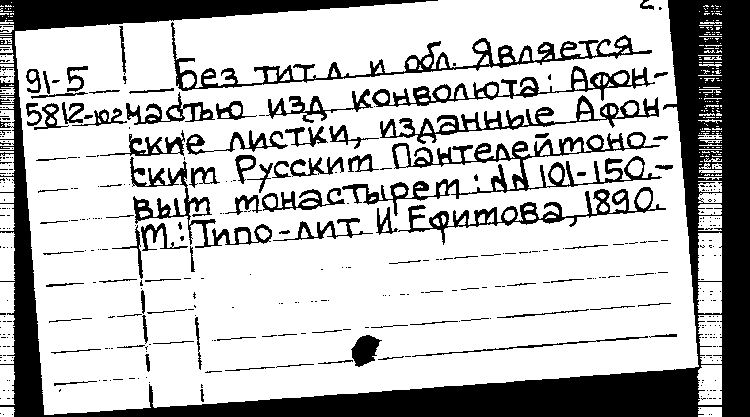 2.
Без тит. л. и обл. Является
91-5
5812-юг частью изд. конволюта: Афон-
ские листки, изданные Афон-
ским Русским Пантелеймоно-
вым монастырем: №№ 101-150.-
М.: Типо-лит. И. Ефимова, 1890.